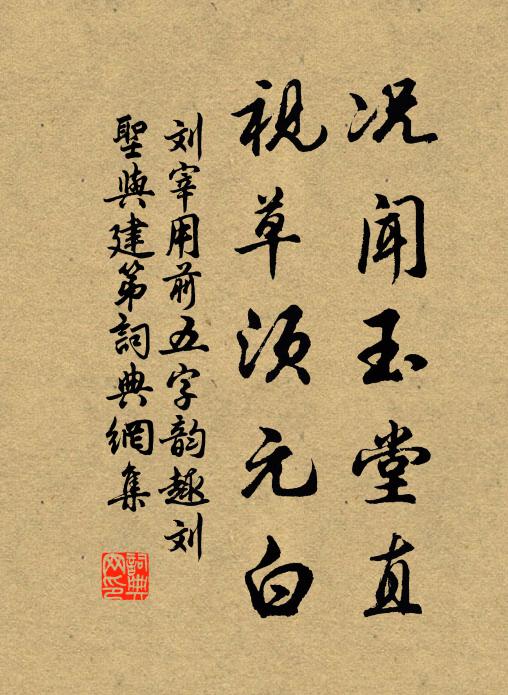 况闻玉堂直
视草须元白
刘宰用前五字韵趣刘
圣与建第词典網集
詞典
网印